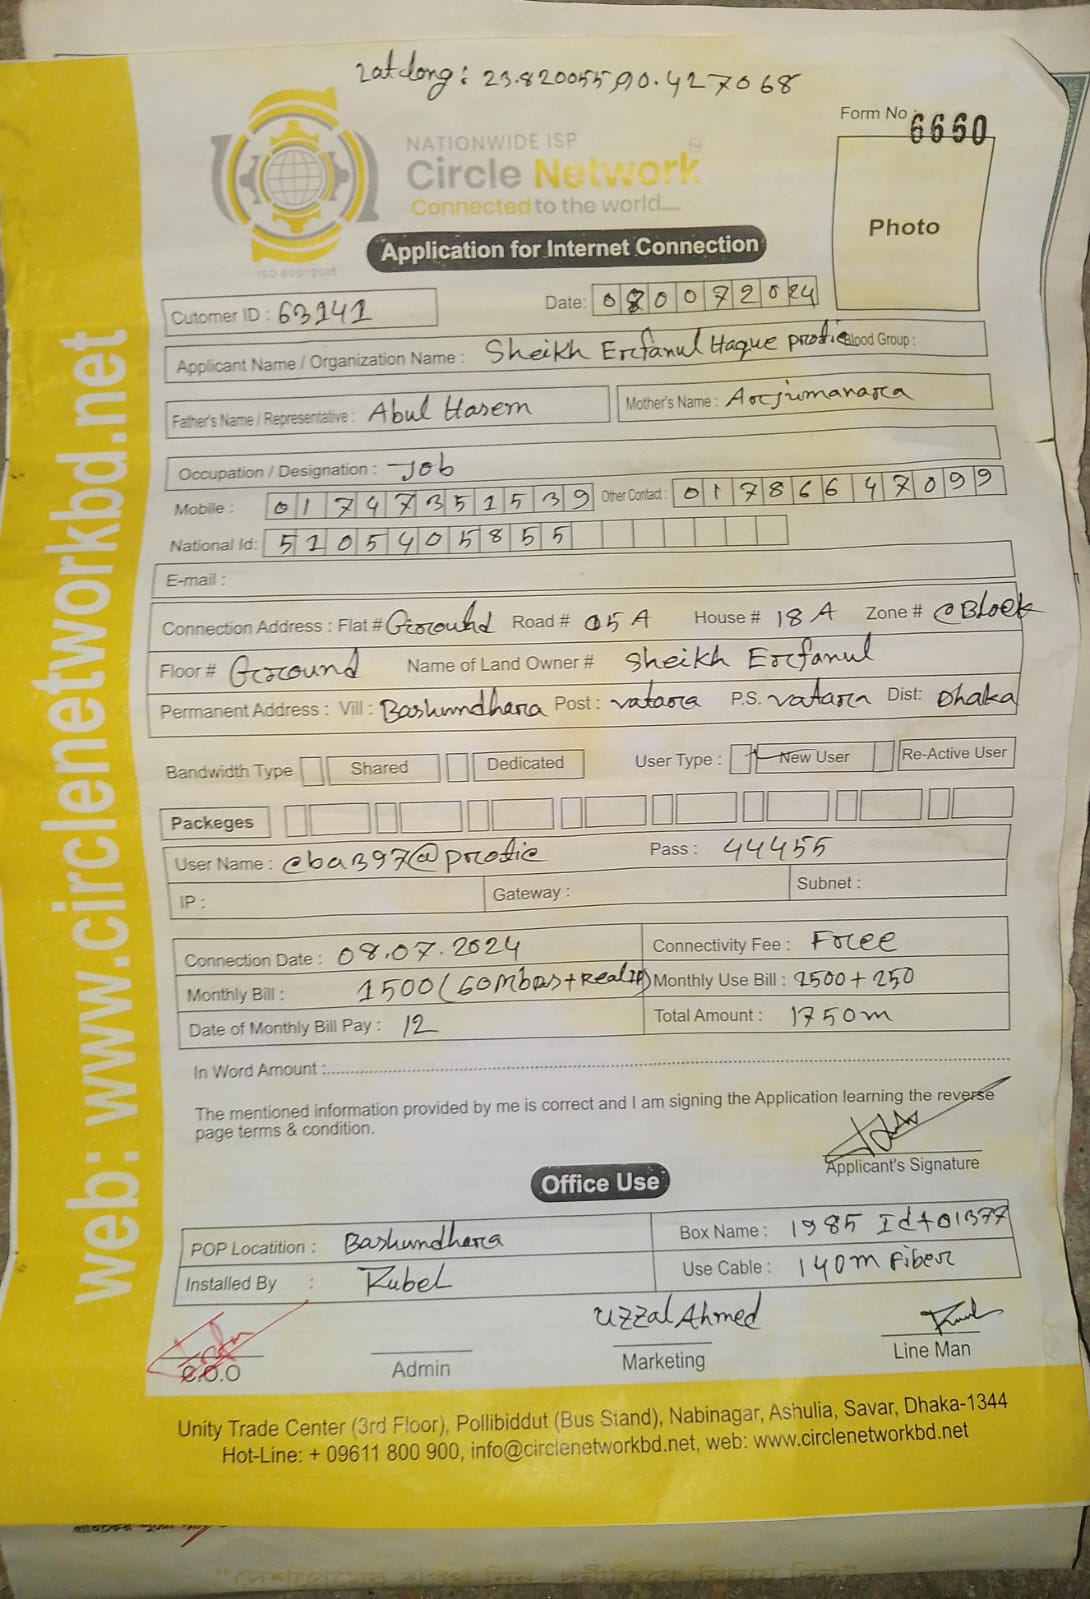 Lat long: 23.820055,90.427068
Form No : 6660
NATIONWIDE ISP
Circle Network
Connected to the world.....
ISO 9001:2015
Photo
Application for Internet Connection
Cutomer ID : 63141
Date: 08 007 2024
Applicant Name / Organization Name : Sheikh Erfanul Haque protic Blood Group :
Father's Name / Representative : Abul Hasem Mother's Name : Arjumanara
Occupation / Designation : Job
Mobile : 01747351539 Other Contact : 01786647099
National Id: 5105405855
E-mail :
Connection Address : Flat # Ground Road # 05 A House # 18 A Zone # @Block
Floor # Ground Name of Land Owner # Sheikh Erfanul
Permanent Address : Vill : Bashundhara Post : vatara P.S. vatara Dist: Dhaka
Bandwidth Type Shared Dedicated User Type : New User Re-Active User
Packeges
User Name : cba397@protic Pass : 44455
IP : Gateway : Subnet :
Connection Date : 08.07.2024 Connectivity Fee : Free
Monthly Bill : 1500 (60mbps+RealIP) Monthly Use Bill : 1500 + 250
Date of Monthly Bill Pay : 12 Total Amount : 1750m
In Word Amount :
The mentioned information provided by me is correct and I am signing the Application learning the reverse
page terms & condition.
Applicant's Signature
Office Use
POP Locatition : Bashundhara Box Name : 1985 Id+01377
Installed By : Rubel Use Cable : 140m Fiber
Uzzal Ahmed
C.O.O Admin Marketing Line Man
Unity Trade Center (3rd Floor), Pollibiddut (Bus Stand), Nabinagar, Ashulia, Savar, Dhaka-1344
Hot-Line: + 09611 800 900, info@circlenetworkbd.net, web: www.circlenetworkbd.net
web: www.circlenetworkbd.net